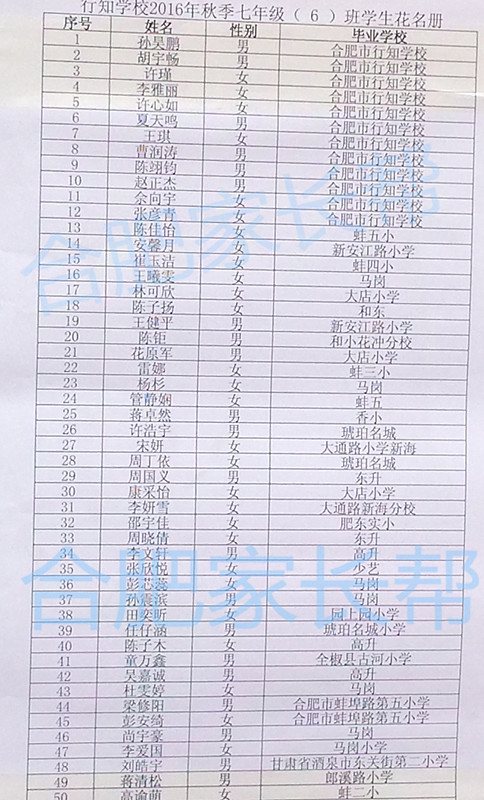 行知学校2016年秋季七年级（6）班学生花名册
序号 姓名 性别 毕业学校
1 孙昊鹏 男 合肥市行知学校
2 胡宇畅 男 合肥市行知学校
3 许瑾 女 合肥市行知学校
4 李雅丽 女 合肥市行知学校
5 许心如 女 合肥市行知学校
6 夏天鸣 男 合肥市行知学校
7 王琪 女 合肥市行知学校
8 曹润涛 男 合肥市行知学校
9 陈翊钧 男 合肥市行知学校
10 赵正杰 男 合肥市行知学校
11 余向宇 女 合肥市行知学校
12 张彦青 女 合肥市行知学校
13 陈佳怡 女 蚌五小
14 安馨月 女 新安江路小学
15 崔玉洁 女 蚌四小
16 王曦雯 女 马岗
17 林可欣 女 大店小学
18 陈子扬 女 和东
19 王健平 男 新安江路小学
20 陈钜 男 和小花冲分校
21 花原军 男 大店小学
22 雷娜 女 蚌三小
23 杨杉 女 马岗
24 管静娴 女 蚌五
25 蒋卓然 男 香小
26 许浩宇 男 琥珀名城
27 宋妍 女 大通路小学新海
28 周丁依 女 琥珀名城
29 周国义 男 东升
30 康采怡 女 大店小学
31 李妍雪 女 大通路新海分校
32 邵宇佳 女 肥东实小
33 周晓倩 女 东升
34 李文轩 男 高升
35 张欣悦 女 少艺
36 彭芯蕊 女 马岗
37 孙震滨 男 马岗
38 田奕昕 女 园上园小学
39 任仔涵 男 琥珀名城小学
40 陈子木 女 高升
41 童万鑫 男 全椒县古河小学
42 吴嘉诚 男 高升
43 杜雯婷 女 马岗
44 梁修阳 男 合肥市蚌埠路第五小学
45 彭安绮 女 合肥市蚌埠路第五小学
46 尚宇豪 男 马岗
47 李爱国 女 马岗小学
48 刘皓宇 男 甘肃省酒泉市东关街第二小学
49 蒋清松 男 郎溪路小学
50 高谕萌 女 蚌二小
合肥家长帮
合肥家长帮